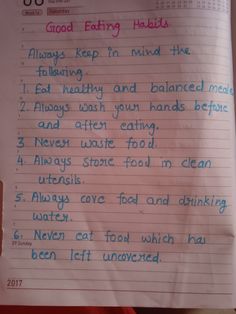 Saturday
Good Eating Habits
Always keep in mind the
following.
1. Eat healthy and balanced meals
2. Always wash your hands before
and after eating.
3. Never waste food.
4. Always store food in clean
utensils.
5. Always cove food and drinking
water.
6. Never eat food which has
29 Sunday
been left uncovered.
2017